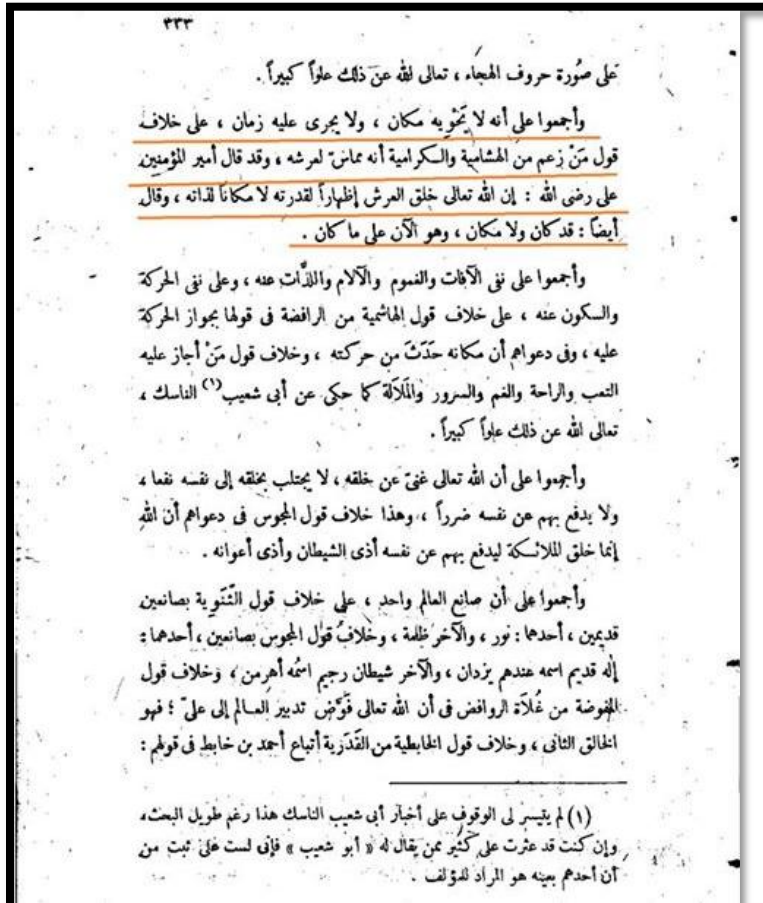 ٣٣٣
على صُورة حروف الهجاء ، تعالى الله عن ذلك علواً كبيراً .
وأجمعوا على أنه لا يَحْوِيه مكان ، ولا يجرى عليه زمان ، على خلاف
قول مَنْ زعم من الهشامية والكرامية أنه مماسّ لعرشه ، وقد قال أمير المؤمنين
على رضى الله : إن الله تعالى خلق العرش إظهاراً لقدرته لا مكاناً لذاته ، وقال
أيضاً : قد كان ولا مكان ، وهو الآن على ما كان .
وأجمعوا على نفى الآفات والغموم والآلام واللذَّات عنه ، وعلى نفى الحركة
والسكون عنه ، على خلاف قول الهاشمية من الرافضة فى قولها بجواز الحركة
عليه ، وفى دعواهم أن مكانه حَدَثَ من حركته ، وخلاف قول مَنْ أجاز عليه
التعب والراحة والغم والسرور والمَلَالة كما حكى عن أبى شعيب(١) الناسك ،
تعالى الله عن ذلك علواً كبيراً .
وأجمعوا على أن الله تعالى غنىّ عن خلقه ، لا يجتلب بخلقه إلى نفسه نفعا ،
ولا يدفع بهم عن نفسه ضرراً ، وهذا خلاف قول المجوس فى دعواهم أن الله
إنما خلق الملائكة ليدفع بهم عن نفسه أذى الشيطان وأذى أعوانه .
وأجمعوا على أن صانع العالم واحد ، على خلاف قول الثَّنَوية بصانعين
قديمين ، أحدهما : نور ، والآخر ظلمة ، وخلافُ قول المجوس بصانعين ، أحدهما :
إله قديم اسمه عندهم يزدان ، والآخر شيطان رجيم اسمُه أهرمن ، وخلاف قول
المفوضة من غُلَاة الروافض فى أن الله تعالى فَوَّض تدبير العالم إلى علىّ ؛ فهو
الخالق الثانى ، وخلاف قول الخابطية من القَدَرية أتباع أحمد بن خابط فى قولهم :
(١) لم يتيسر لى الوقوف على أخبار أبى شعيب الناسك هذا رغم طويل البحث،
وإن كنت قد عثرت على كثير ممن يقال له « أبو شعيب » فإنى لست على ثبت من
أن أحدهم بعينه هو المراد للمؤلف .